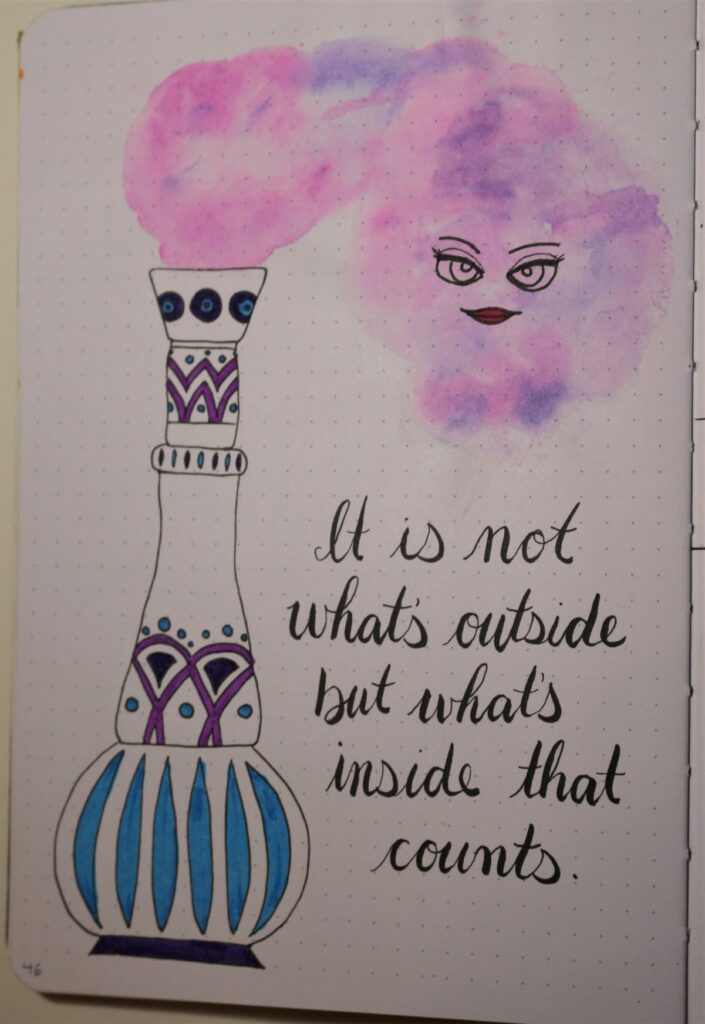 It is not
what's outside
but what's
inside that
counts.
46